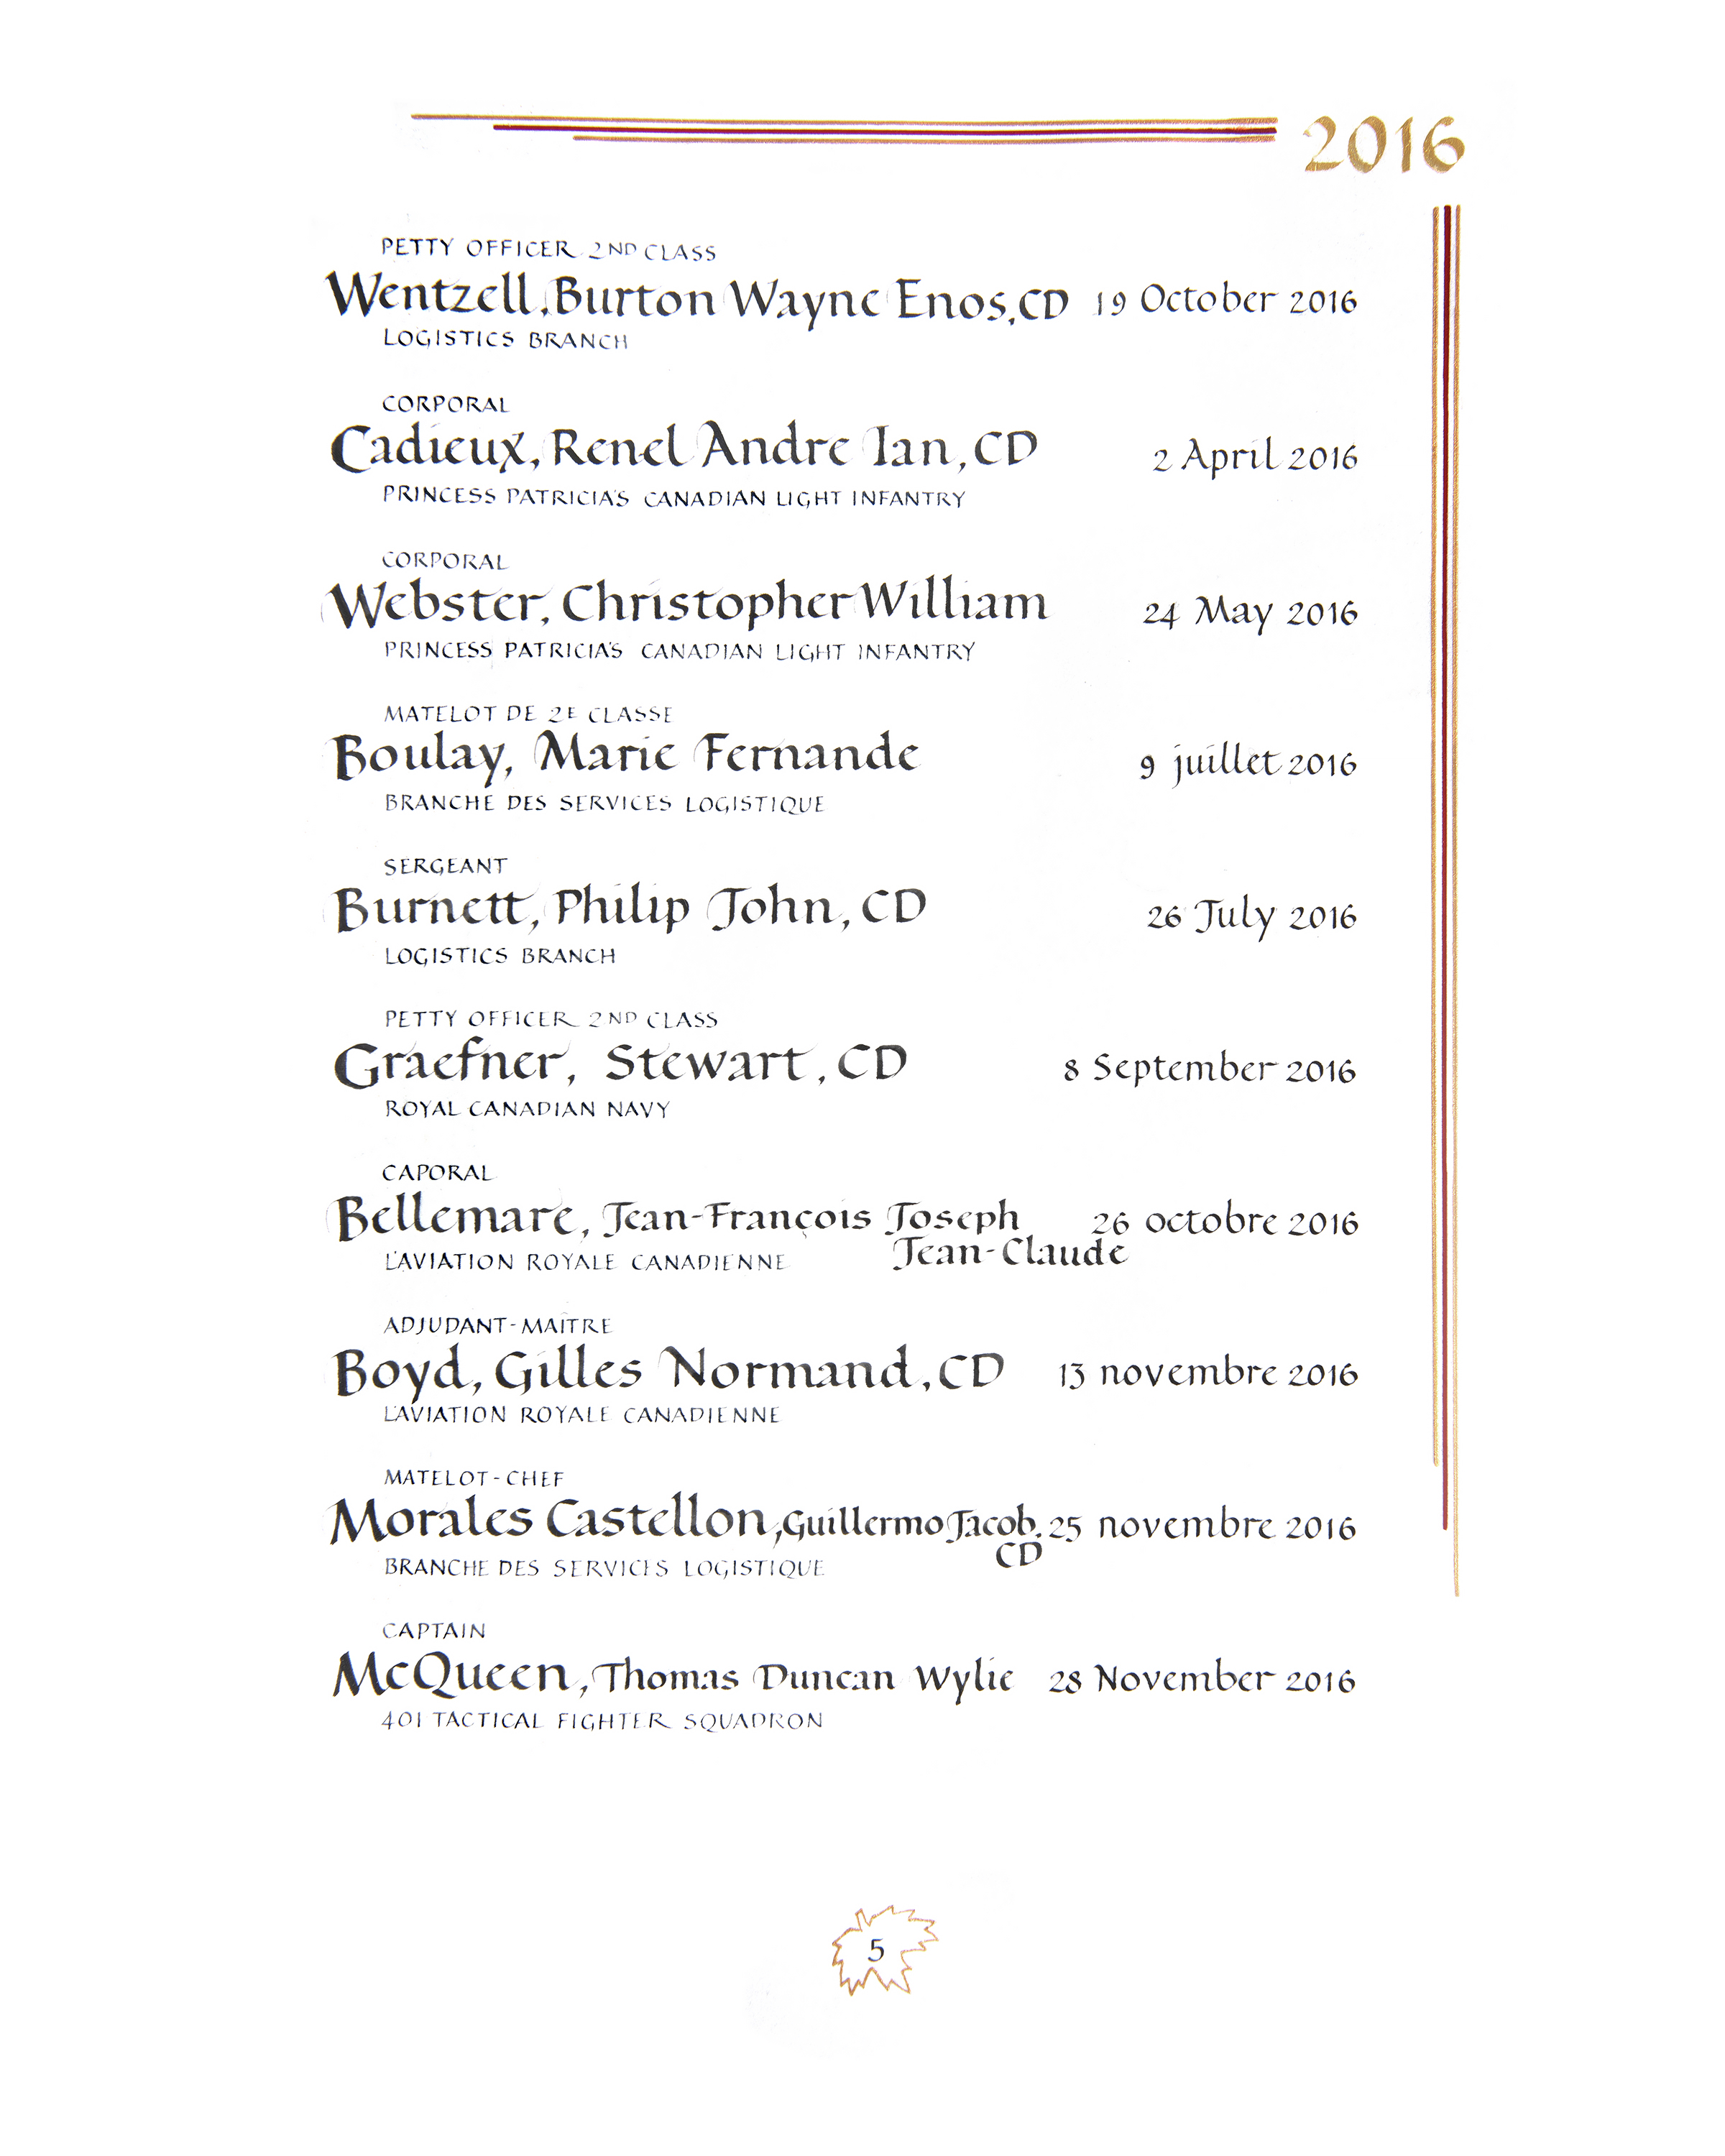 2016
PETTY OFFICER 2ND CLASS
Wentzell, Burton Wayne Enos, CD 19 October 2016
LOGISTICS BRANCH
CORPORAL
Cadieux, Renel Andre Ian, CD 2 April 2016
PRINCESS PATRICIA'S CANADIAN LIGHT INFANTRY
CORPORAL
Webster, Christopher William 24 May 2016
PRINCESS PATRICIA'S CANADIAN LIGHT INFANTRY
MATELOT DE 2E CLASSE
Boulay, Marie Fernande 9 juillet 2016
BRANCHE DES SERVICES LOGISTIQUE
SERGEANT
Burnett, Philip John, CD 26 July 2016
LOGISTICS BRANCH
PETTY OFFICER 2ND CLASS
Graefner, Stewart, CD 8 September 2016
ROYAL CANADIAN NAVY
CAPORAL
Bellemare, Jean-François Joseph 26 octobre 2016
Jean-Claude
L'AVIATION ROYALE CANADIENNE
ADJUDANT-MAÎTRE
Boyd, Gilles Normand, CD 13 novembre 2016
L'AVIATION ROYALE CANADIENNE
MATELOT-CHEF
Morales Castellon, Guillermo Jacob, 25 novembre 2016
CD
BRANCHE DES SERVICES LOGISTIQUE
CAPTAIN
McQueen, Thomas Duncan Wylie 28 November 2016
401 TACTICAL FIGHTER SQUADRON
5